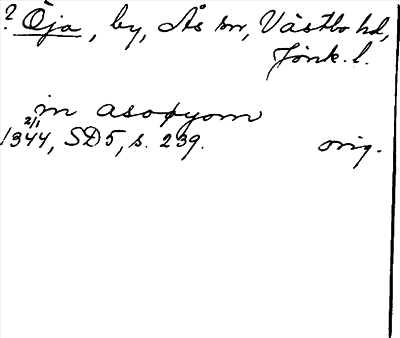 ? Öja, by, Ås sn, Västbo hd,
Jönk. l.
in asoøyom
2/1
1344, SD5, s. 239. orig.